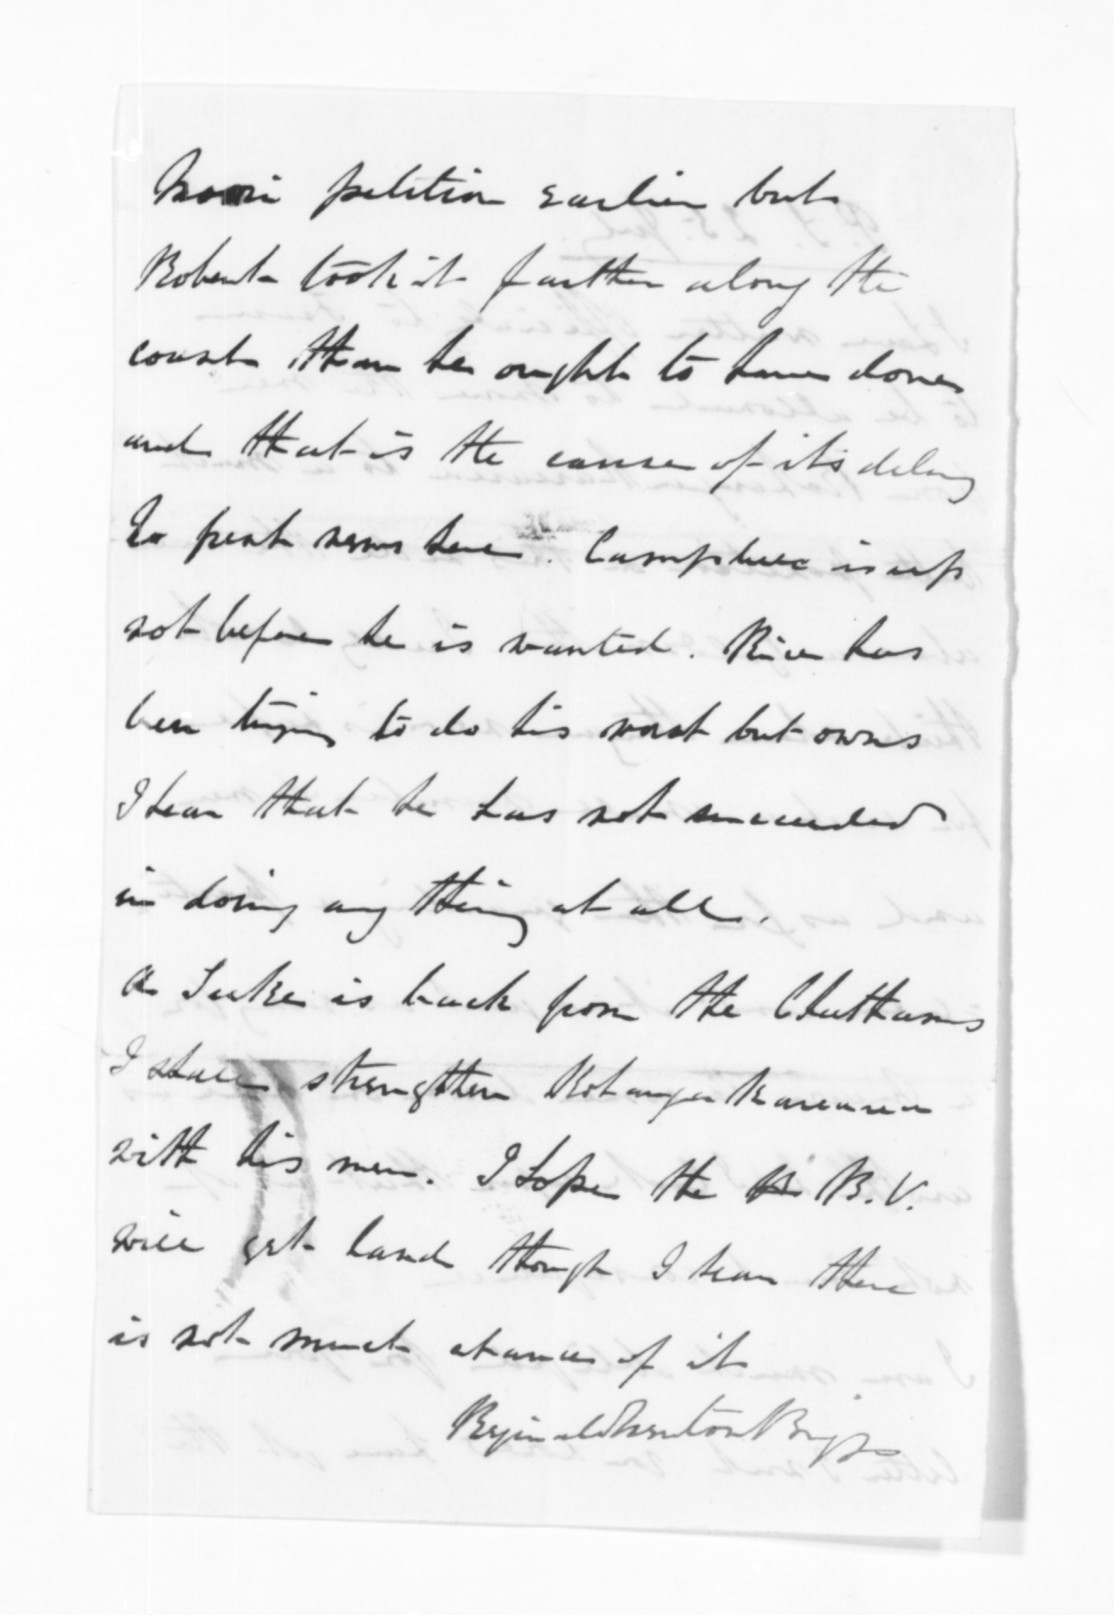 Maori petition earlier but
Robert took it farther along the
coast than he ought to have done
and that is the cause of its delay
No fresh news here. Campbell is up
not before he is wanted. Rice has
been trying to do his worst but owns
I hear that he has not succeeded
in doing any thing at all.
As Luke is back from the Chathams
I shall strengthen
with his men. I hope the B.V.
will get land though I hear there
is not much chance of it
Reginald Newton Biggs